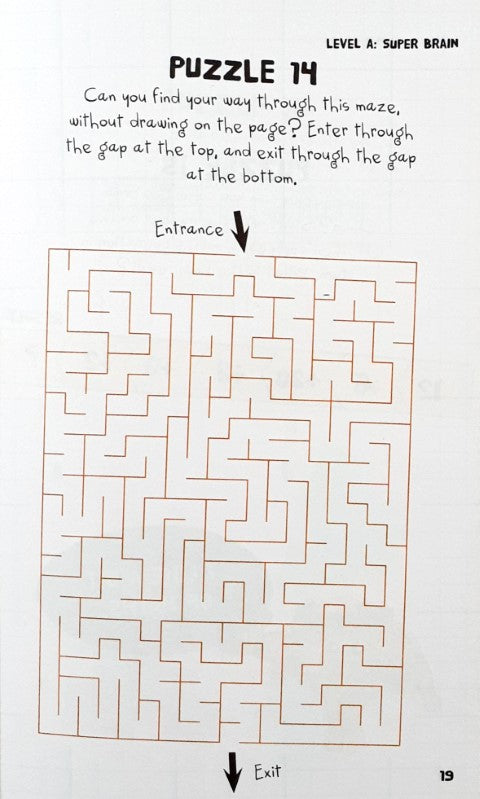 LEVEL A: SUPER BRAIN
PUZZLE 14
Can you find your way through this maze,
without drawing on the page? Enter through
the gap at the top, and exit through the gap
at the bottom.
Entrance
Exit
19